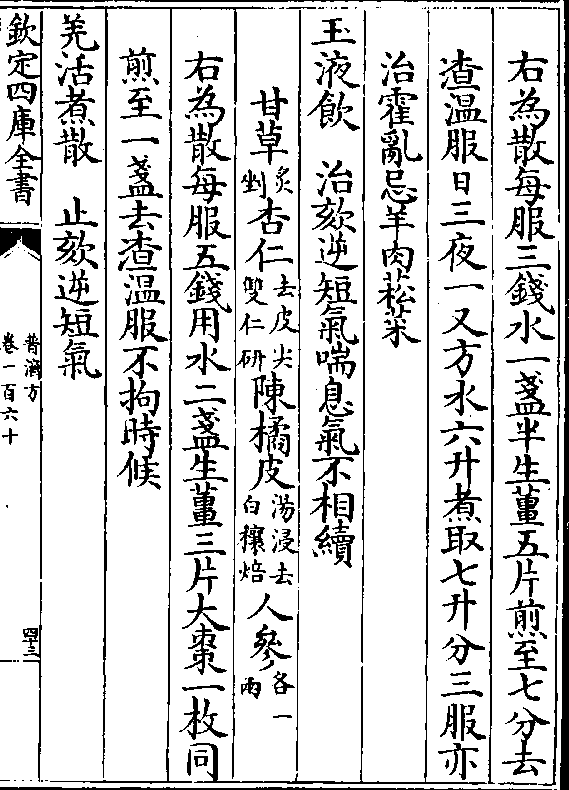 右為散每服三錢水一盞半生薑五片煎至七分去
查温服日三夜一又方水六升煮取七升分三服亦
治霍亂忌羊肉菘菜
玉液飲　治欬逆短氣喘息氣不相續
甘草炙剉杏仁去皮尖雙仁研陳橘皮湯浸去白穰焙人參各一兩
右為散每服五錢用水二盞生薑三片大棗一枚同
煎至一盞去查温服不拘時候
羌活煮散　止欬逆短氣
欽定四庫全書
普濟方
卷一百六十